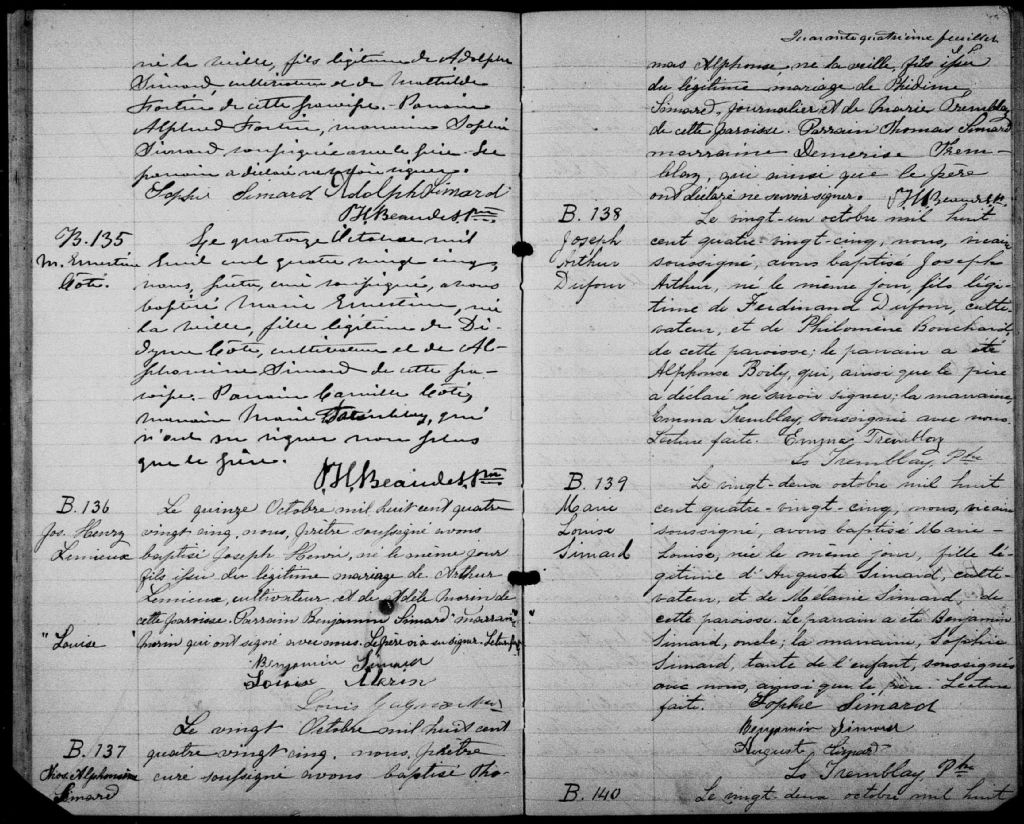 né la veille, fils légitime de Adolphe
Simard, cultivateur et de Mathilde
Fortin de cette paroisse. Parrain
Alfred Fortin, marraine Sophie
Simard soussignée avec le père. Le
parrain a déclaré ne savoir signer.
Sophie Simard Adolph Simard
P.H. Beaudet Ptre
B. 135
M. Ernestine
Coté.
Le quatorze Octobre mil
huit cent quatre vingt cinq,
nous, prêtre, curé soussigné, avons
baptisé Marie Ernestine, née
la veille, fille légitime de Di-
dyme Côté, cultivateur et de Al-
phonsine Simard de cette pa-
roisse. Parrain Camille Côté,
marraine Marie Tremblay, qui
n'ont su signer non plus
que le père.
P.H. Beaudet Ptre
B. 136
Jos. Henry
Lemieux
Le quinze Octobre mil huit cent quatre
vingt cinq, nous, prêtre soussigné avons
baptisé Joseph Henri, né le même jour
fils issu du légitime mariage de Arthur
Lemieux, cultivateur et de Adèle Morin de
cette paroisse. Parrain Benjamin Simard marraine
" Louise "
Morin qui ont signé avec nous. Le père n'a su signer.
Benjamin Simard
Louise Morin
Louis
B. 137
Thos. Alphonsine
Simard
Le vingt Octobre mil huit cent
quatre vingt cinq, nous, prêtre
curé soussigné avons baptisé Tho-
Quarante quatrième feuillet
mas Alphonse, né la veille, fils issu
du légitime mariage de Phidime
Simard, journalier et de Marie Tremblay
de cette paroisse. Parrain Thomas Simard
marraine Demerise Trem-
blay, qui ainsi que le père
ont déclaré ne savoir signer. P.H. Beaudet Ptre
B. 138
Joseph
Arthur
Dufour
Le vingt-un octobre mil huit
cent quatre-vingt-cinq, nous, vicaire
soussigné, avons baptisé Joseph
Arthur, né le même jour, fils légi-
time de Ferdinand Dufour, culti-
vateur, et de Philomène Bouchard,
de cette paroisse; le parrain a été
Alphonse Boily, qui, ainsi que le père
a déclaré ne savoir signer; la marraine,
Emma Tremblay, soussignée avec nous.
Lecture faite. Emma Tremblay
Ls Tremblay, Ptre
B. 139
Marie
Louise
Simard
Le vingt-deux octobre mil huit
cent quatre-vingt-cinq, nous, vicaire
soussigné, avons baptisé Marie-
Louise, née le même jour, fille lé-
gitime d'Auguste Simard, culti-
vateur, et de Mélanie Simard, de
cette paroisse. Le parrain a été Benjamin
Simard, oncle; la marraine, Sophie
Simard, tante de l'enfant, soussignés
avec nous, ainsi que le père. Lecture
faite. Sophie Simard
Benjamin Simard
Auguste Simard
Ls Tremblay, Ptre
B. 140
Le vingt-deux octobre mil huit